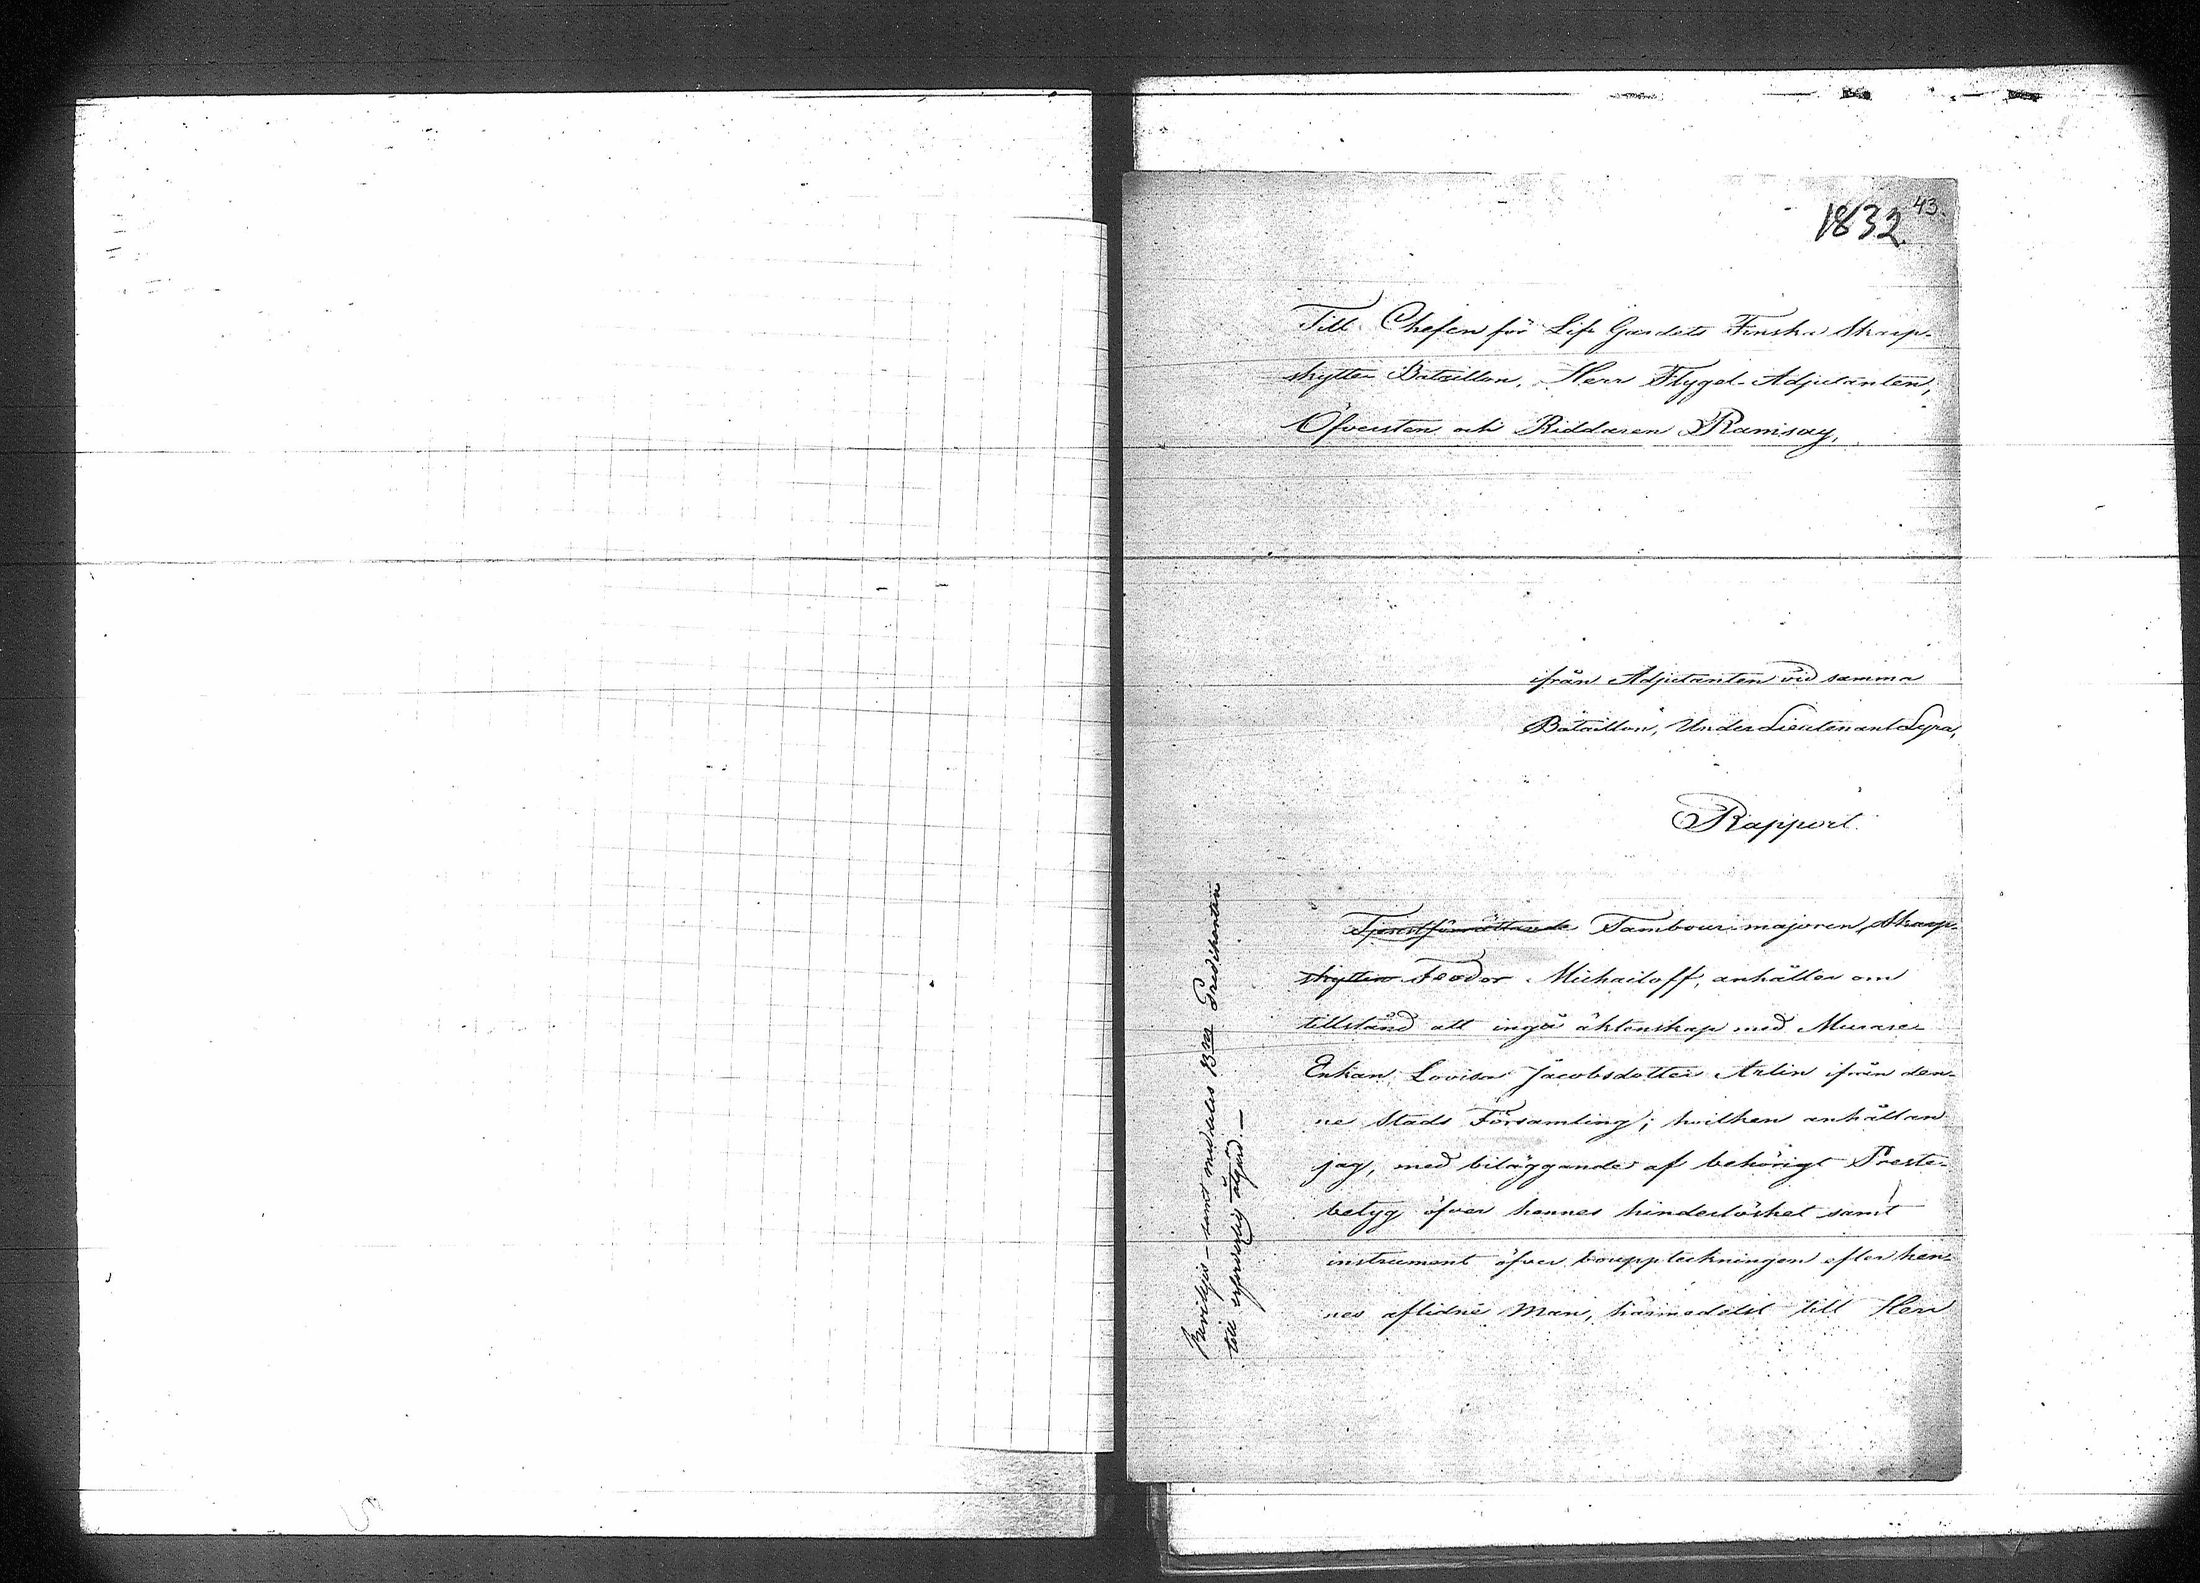 43.
1832.
Till Chefen för Lif Gardets Finska Skarp-
skytte Bataillon, Herr Flygel-Adjutanten,
Öfversten och Riddaren Ramsay,
ifrån Adjutanten vid samma
Bataillon, UnderLieutenant Lyra,
Rapport.
Tjenstförrättande Tambourmajoren, Skarp-
skytten Feodor Michailoff, anhåller om
tillstånd att ingå äktenskap med Murare-
Enkan Lovisa Jacobsdotter Arlin ifrån den-
ne Stads Församling; hvilken anhållan
jag, med biläggande af behörigt Preste-
betyg öfver hennes hinderlöshet samt
instrument öfver bouppteckningen efter hen-
nes aflidne Man, härmedelst till Herr
samt meddelas Predikanten
till erforderlig åtgärd.—